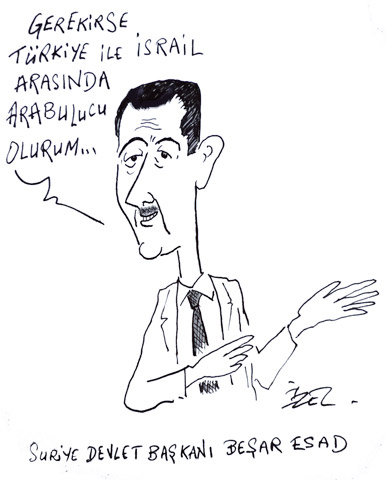 GEREKİRSE
TÜRKİYE İLE İSRAİL
ARASINDA
ARABULUCU
OLURUM...
İZEL
SURİYE DEVLET BAŞKANI BEŞAR ESAD